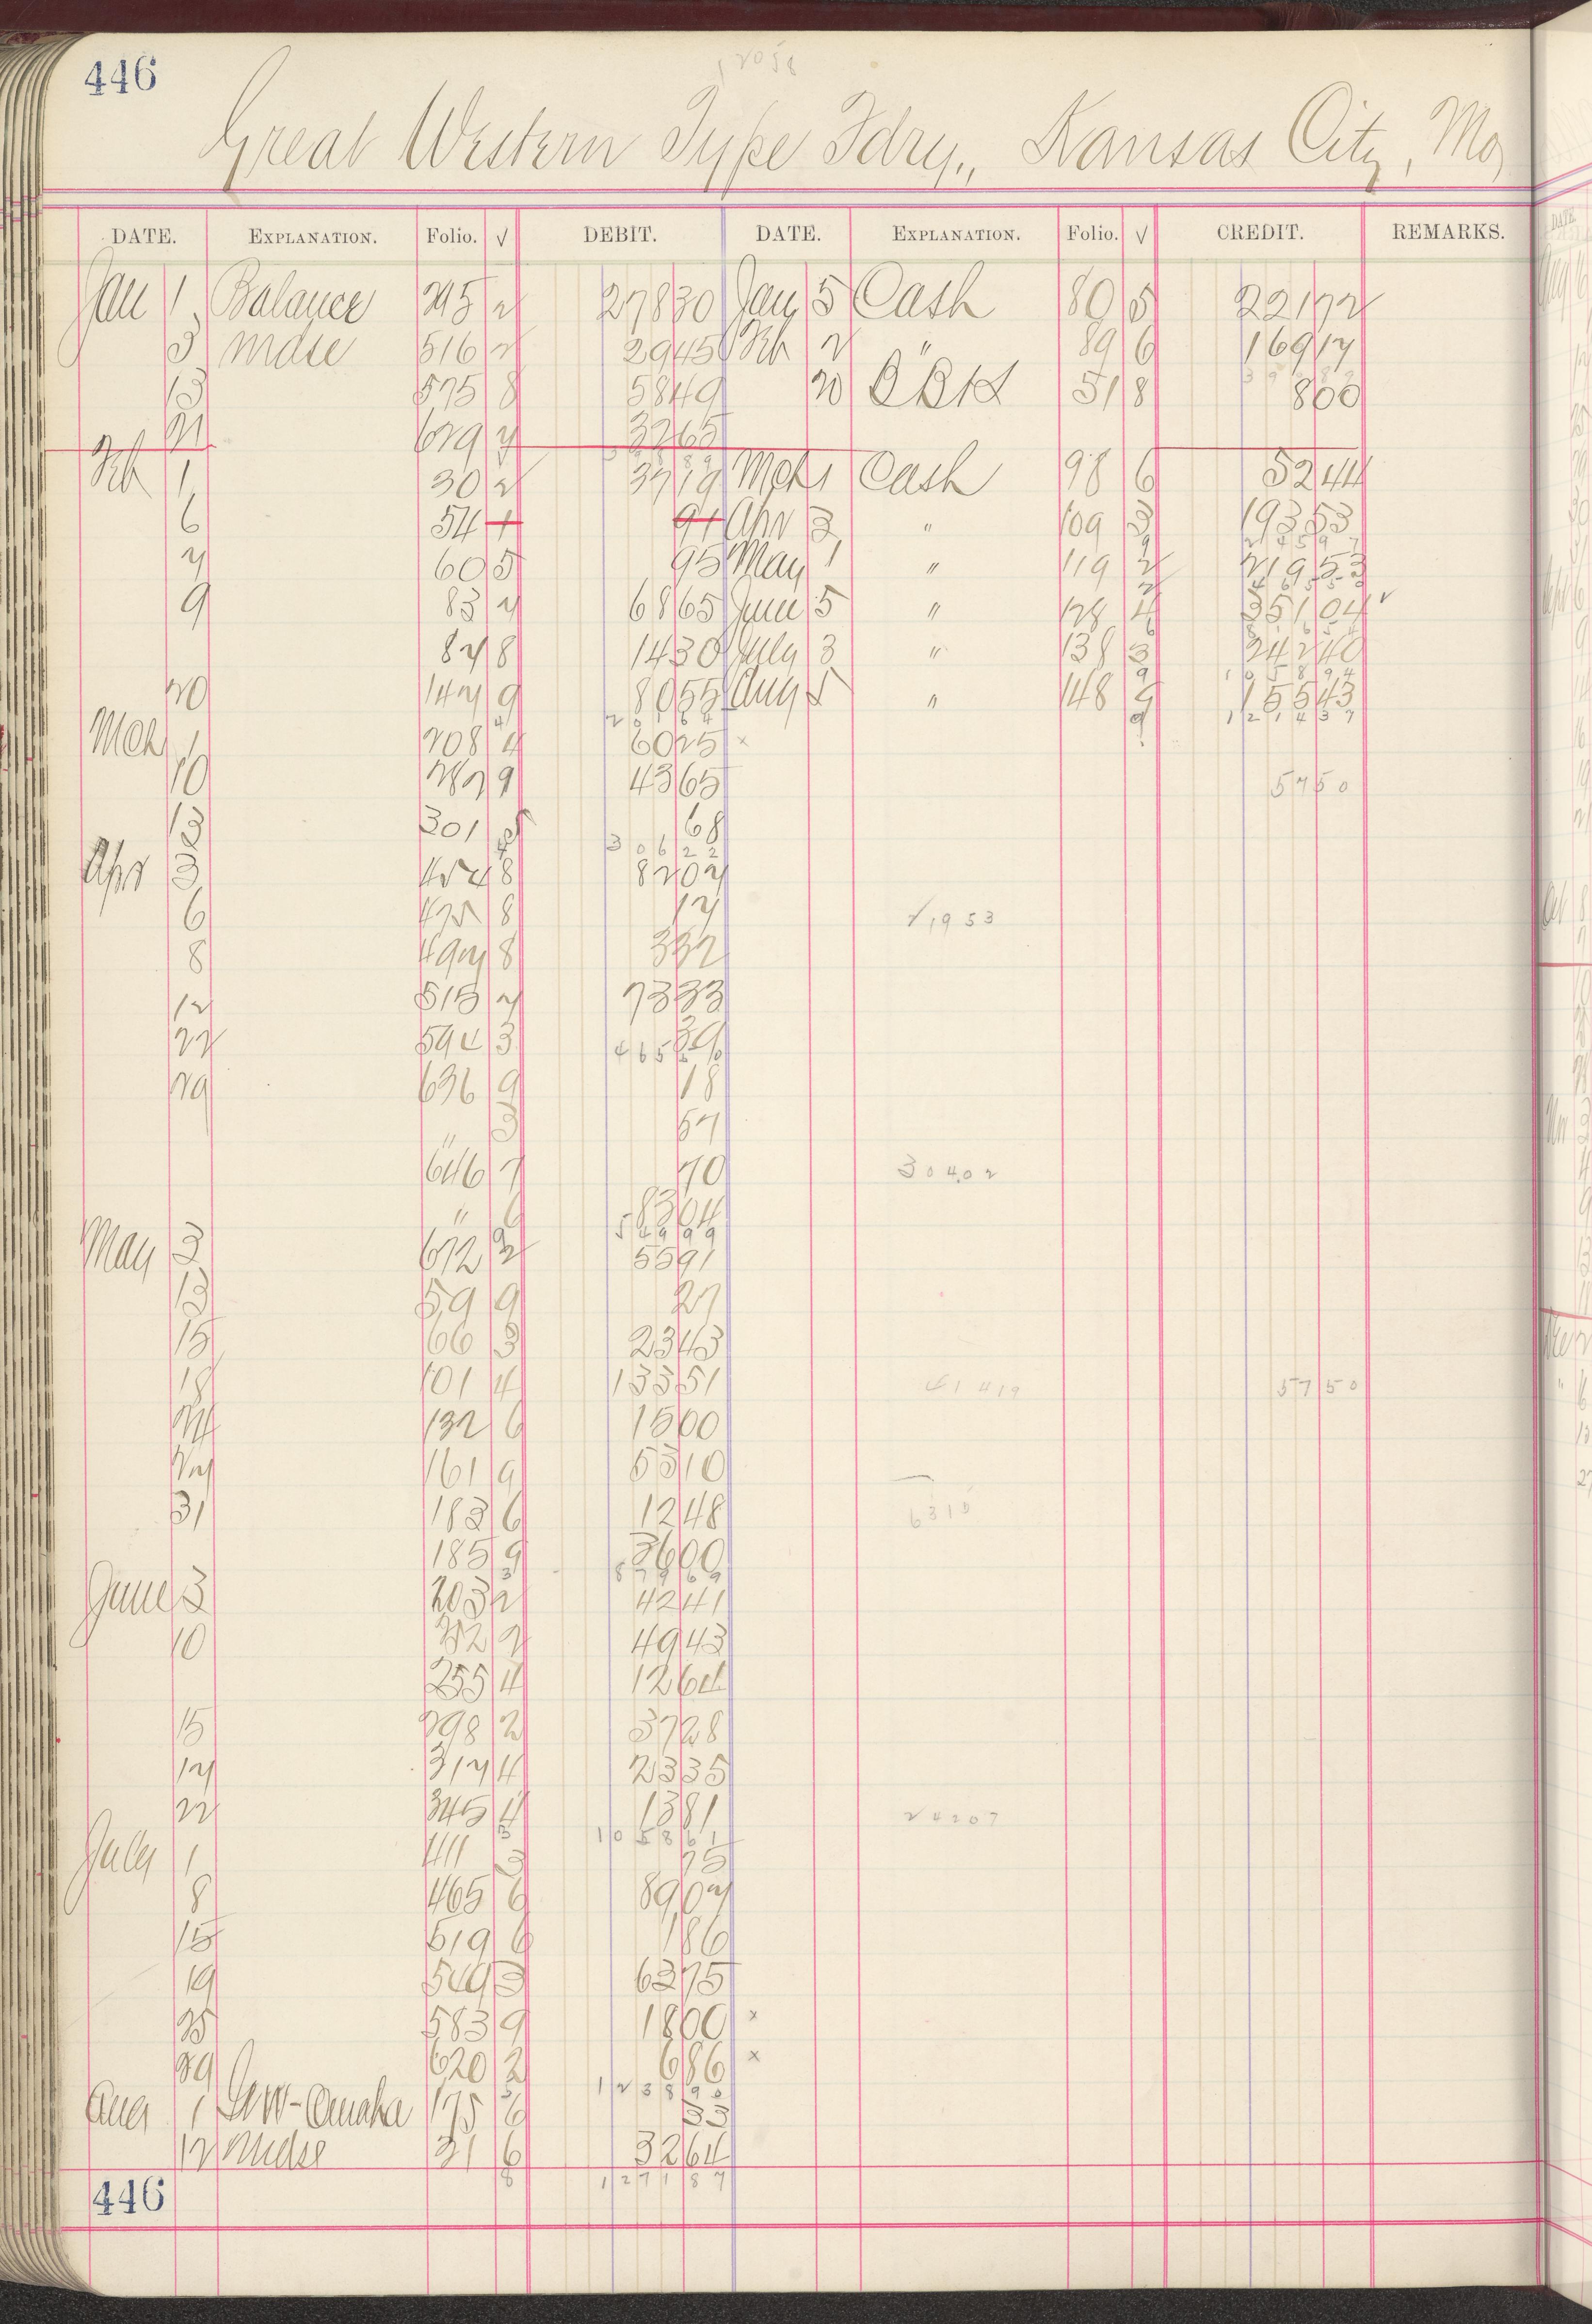 446
Great Western Type Fdry., Kansas City, Mo
DATE. EXPLANATION. Folio. √ DEBIT. DATE. EXPLANATION. Folio. √ CREDIT. REMARKS.
Jan 1 Balance 245 2 27830 Jan 5 Cash 80 5 22172
3 Mdse 516 2 2945 Feb 2 " 89 6 16917
13 575 8 5849 20 51 8 800
21 679 7 3265
Feb 1 30 2 3719 Mch 1 Cash 98 6 5244
6 54 1 91 Apr 3 " 109 3 19353
7 60 5 95 May 1 " 119 2 21953
9 83 7 6865 June 5 " 128 4 35104
87 8 1430 July 3 " 138 3 24240
20 147 9 8055 Aug 1 " 148 2 15543
20164 121437
Mch 1 208 4 6025 x
10 287 9 4365 5750
13 301 68
30622
Apr 3 8207
6 8 17 21953
8 497 8 332
12 515 7 7333
22 594 3 39
29 636 9 18
" 3 57
646 7 70 30402
" 6 8304
54999
May 3 672 2 5591
13 59 9 27
15 66 3 2343
18 101 4 13351 41419 5750
24 132 6 1500
27 161 9 5310
31 183 6 1248 6315
185 9 3600
87969
June 3 203 2 4241
10 252 2 4943
255 4 1264
15 298 2 3728
17 317 4 2335
22 345 4 1381 24207
105861
July 1 411 3 75
8 465 6 8907
15 519 6 186
19 549 3 6275
25 583 9 1800 x
29 620 2 686 x
123890
Aug 1 GW-Omaha 175 6 33
12 Mdse 31 6 3264
8 127187
446